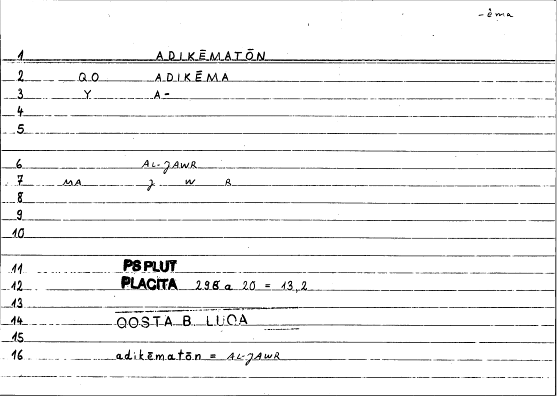 -ēma
1 ADIKĒMATŌN
2 QO ADIKĒMA
3 Y A-
4
5
6 AL-ǧAWR
7 MA ǧ W R
8
9
10
11 PS PLUT
12 PLACITA 296 a 20 = 13,2
13
14 QOSTA B. LUQA
15
16 adikēmatōn = AL-ǧAWR